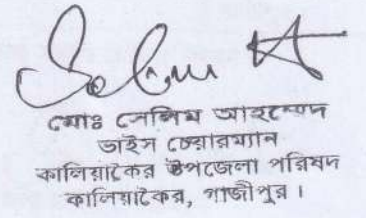 মোঃ সেলিম আহম্মেদ
ভাইস চেয়ারম্যান
কালিয়াকৈর উপজেলা পরিষদ
কালিয়াকৈর, গাজীপুর।